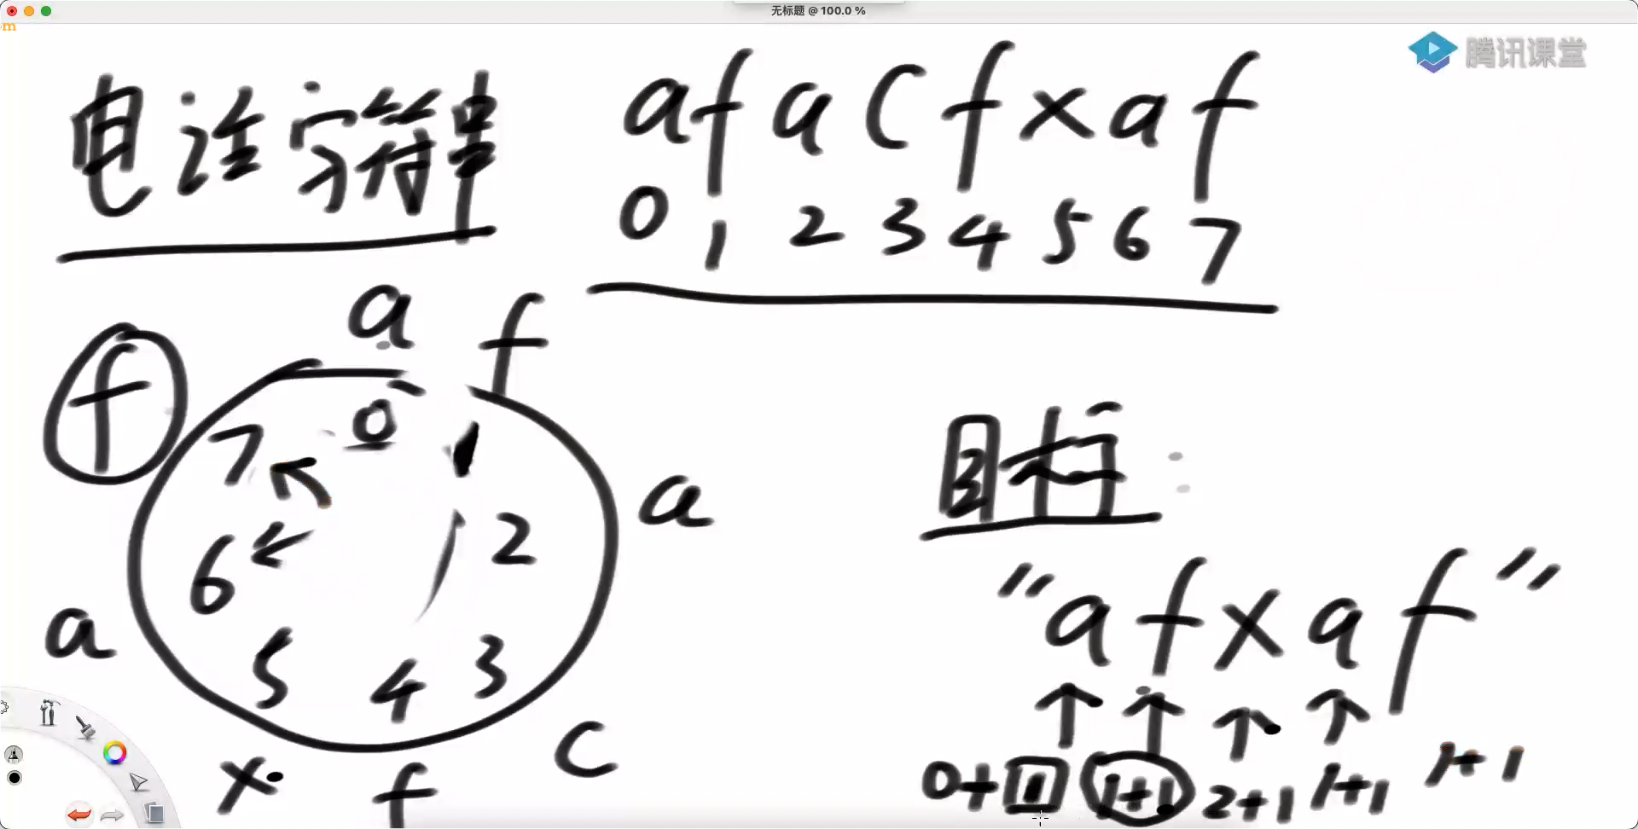 无标题 @ 100.0 %
m
腾讯课堂
电话字符串
a f a c f x a f
0 1 2 3 4 5 6 7
a f
f
7 0 1
a
6 2
a
5 4 3
x f c
目标:
"a f x a f"
0+1 1+1 2+1 1+1 1+1